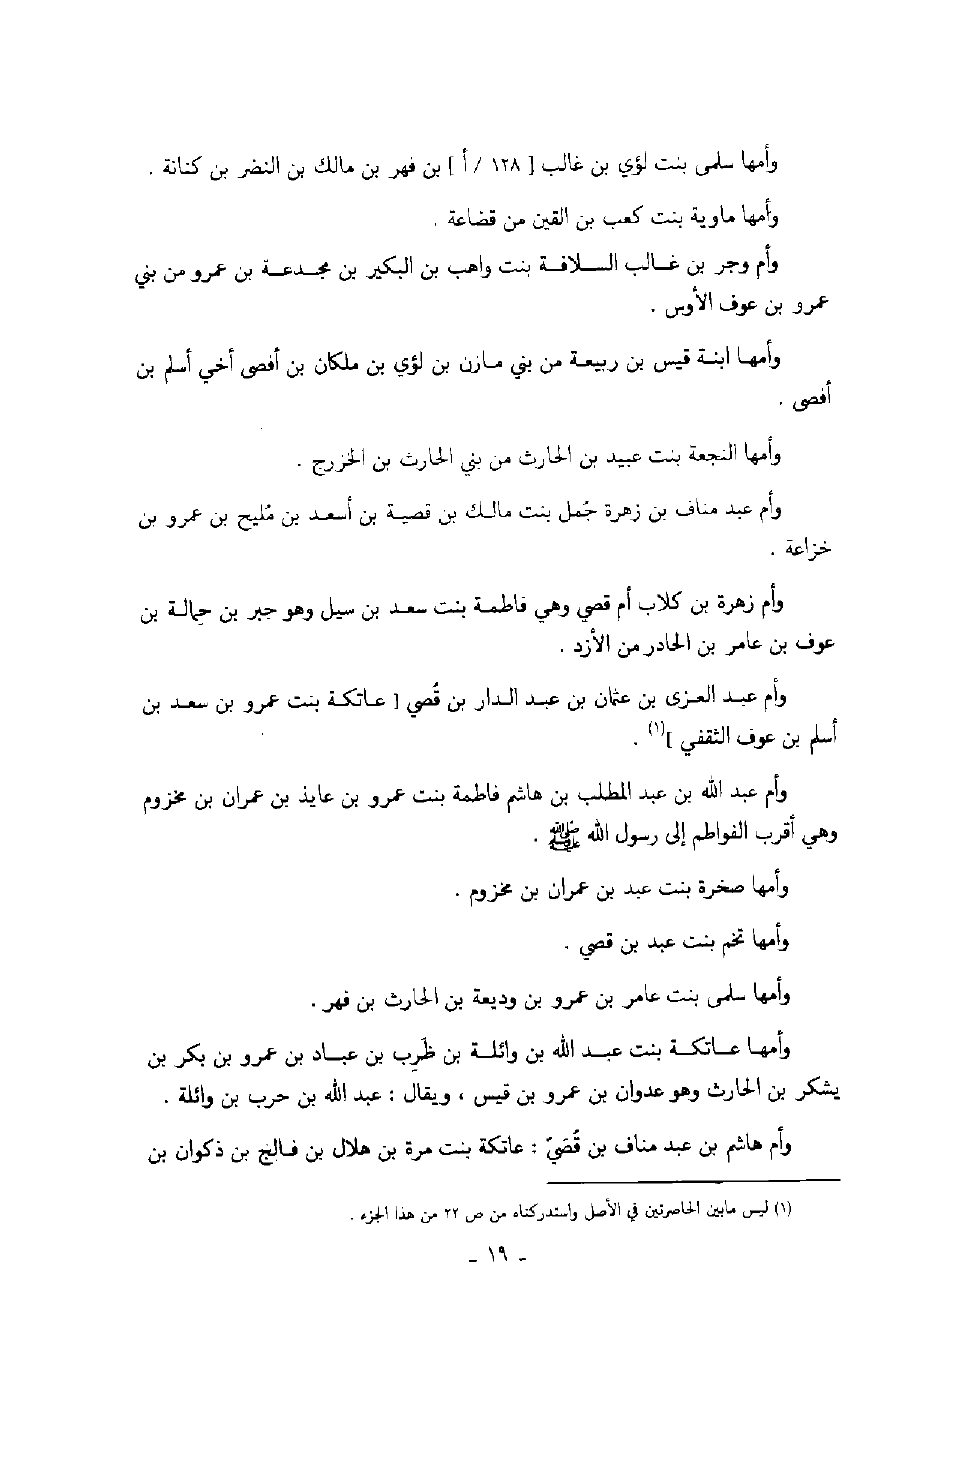 وأمها سلمى بنت لؤي بن غالب [ ١٢٨ / أ ] بن فهر بن مالك بن النضر بن كنانة .
وأمها ماوية بنت كعب بن القين من قضاعة .
وأم وجز بن غالب السلافة بنت واهب بن البكير بن مجدعة بن عمرو من بني
عمرو بن عوف الأوس .
وأمها ابنة قيس بن ربيعة من بني مازن بن لؤي بن ملكان بن أفصى أخي أسلم بن
أفصى .
وأمها النجعة بنت عبيد بن الحارث من بني الحارث بن الخزرج .
وأم عبد مناف بن زهرة جُمل بنت مالك بن قصية بن أسعد بن مُليح بن عمرو بن
خزاعة .
وأم زهرة بن كلاب أم قصي وهي فاطمة بنت سعد بن سيل وهو جبر بن حمالة بن
عوف بن عامر بن الحادر من الأزد .
وأم عبد العزى بن عثمان بن عبد الدار بن قُصي [ عاتكة بنت عمرو بن سعد بن
أسلم بن عوف الثقفي ](١) .
وأم عبد الله بن عبد المطلب بن هاشم فاطمة بنت عمرو بن عايذ بن عمران بن مخزوم
وهي أقرب الفواطم إلى رسول الله ﷺ .
وأمها صخرة بنت عبد بن عمران بن مخزوم .
وأمها تخم بنت عبد بن قصي .
وأمها سلمى بنت عامر بن عمرو بن وديعة بن الحارث بن فهر .
وأمها عاتكة بنت عبد الله بن وائلة بن ظَرِب بن عباد بن عمرو بن بكر بن
يشكر بن الحارث وهو عدوان بن عمرو بن قيس ، ويقال : عبد الله بن حرب بن وائلة .
وأم هاشم بن عبد مناف بن قُصَيّ : عاتكة بنت مرة بن هلال بن فالج بن ذكوان بن
(١) ليس مابين الحاصرتين في الأصل واستدركناه من ص ٢٢ من هذا الجزء .
- ١٩ -